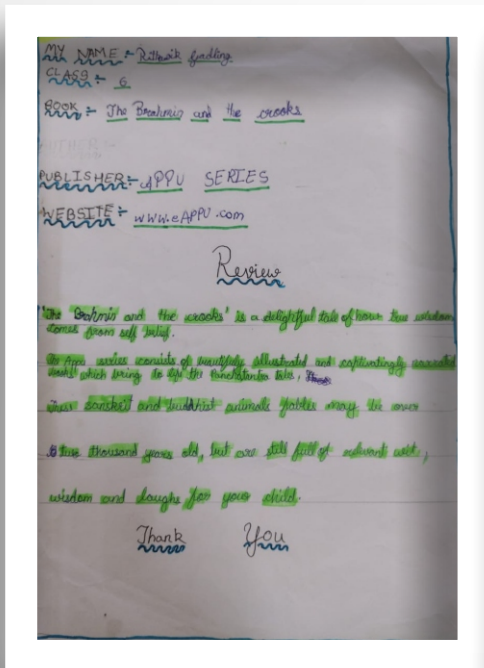 MY NAME :- Rithwik gundling
CLASS :- 6
BOOK :- The Brahmin and the crooks
AUTHER :-
PUBLISHER:- APPU SERIES
WEBSITE :- www.eAPPU.com
Review
'The Brahmin and the crooks' is a delightful tale of how true wisdom
comes from self belief.
The Appu series consists of beautifully illustrated and captivatingly narrated
books which bring to life the Panchatantra tales,
These sanskrit and buddhist animals fables may be over
two thousand years old, but are still full of relevant wit,
wisdom and laughs for your child.
Thank You